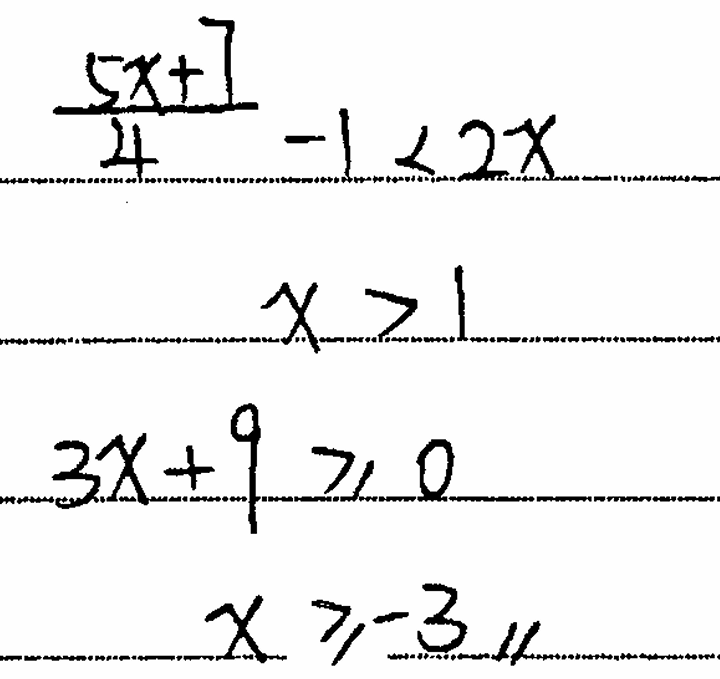 (5x+7)/4 -1 < 2x
x > 1
3x+9 ⩾ 0
x ⩾ -3 //